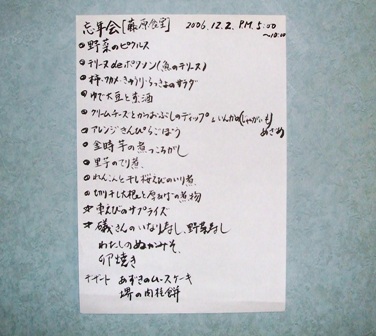 忘年会[藤原食堂] 2006.12.2. P.M.5:00
〜10:00
野菜のピクルス
テリーヌdeポワソン(魚のテリーヌ)
柿・ワカメ・きゅうり・らっきょのサラダ
ゆで大豆と煮酒
クリームチーズとかつおぶしのディップ &いんかの(じゃがいも)
めざめ
アレンジきんぴらごぼう
金時芋の煮っころがし
里芋のてり煮
れんこんと干し桜えびのいり煮
切り干し大根と厚あげの煮物
車えびのサプライズ
礒さんのいなり寿し、野菜寿し
わたしのぬかみそ
卵焼き
デザート あずきのムースケーキ
堺の肉桂餅